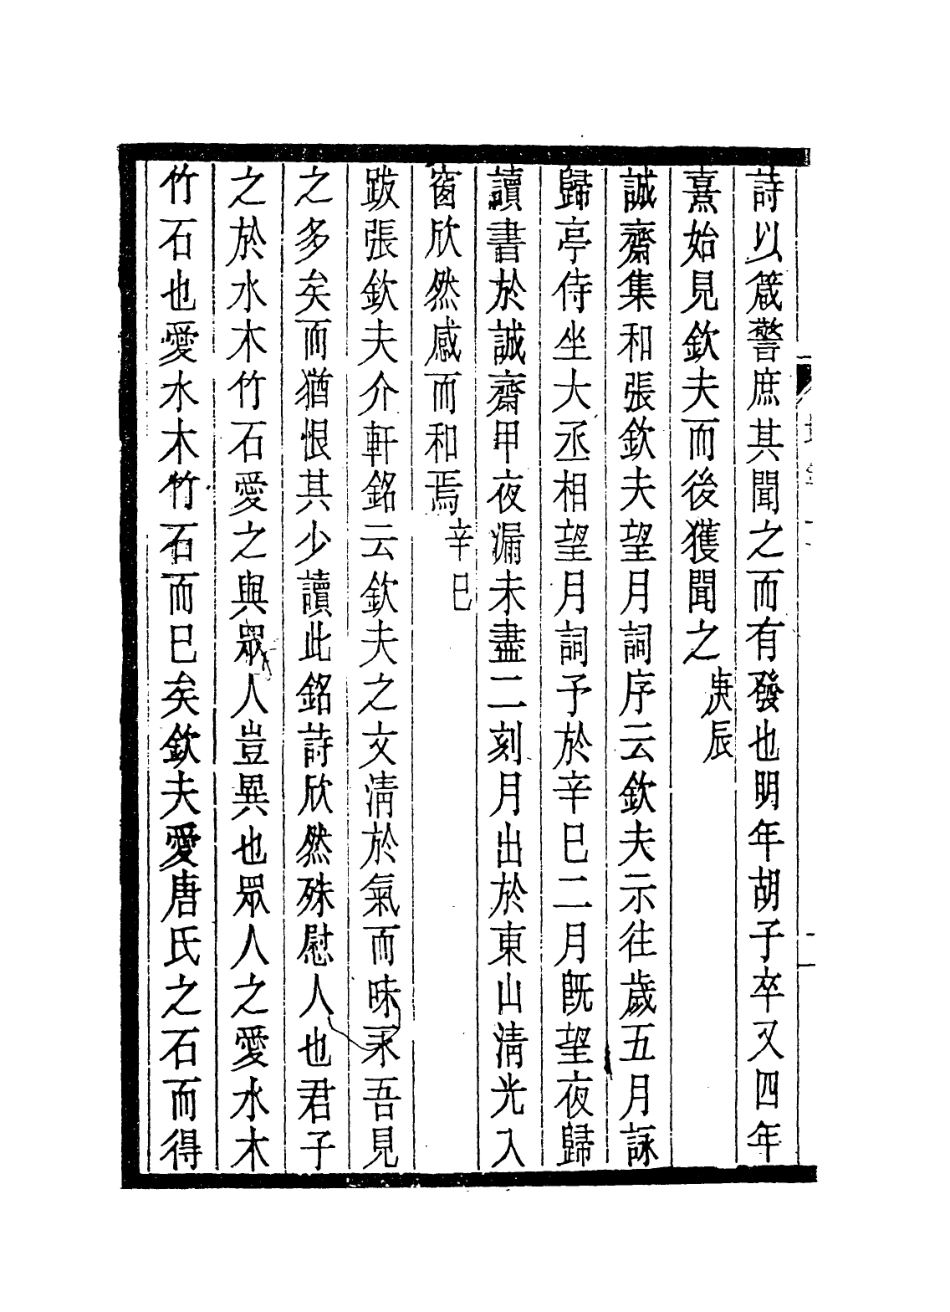 詩以箴警庶其聞之而有發也明年胡子卒又四年
熹始見欽夫而後獲聞之庚辰
誠齋集和張欽夫望月詞序云欽夫示往歲五月詠
歸亭侍坐大丞相望月詞予於辛巳二月旣望夜歸
讀書於誠齋甲夜漏未盡二刻月出於東山清光入
窗欣然感而和焉辛巳
跋張欽夫介軒銘云欽夫之文清於氣而味永吾見
之多矣而猶恨其少讀此銘詩欣然殊慰人也君子
之於水木竹石愛之與眾人豈異也眾人之愛水木
竹石也愛水木竹石而巳矣欽夫愛唐氏之石而得